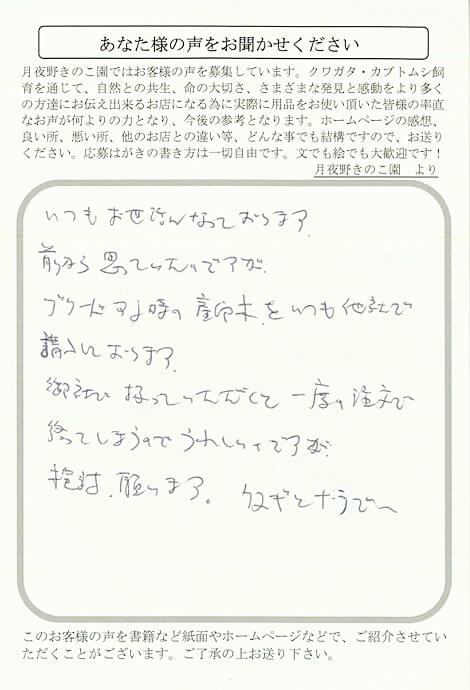 あなた様の声をお聞かせください
月夜野きのこ園ではお客様の声を募集しています。クワガタ・カブトムシ飼
育を通じて、自然との共生、命の大切さ、さまざまな発見と感動をより多く
の方達にお伝え出来るお店になる為に実際に用品をお使い頂いた皆様の率直
なお声が何よりの力となり、今後の参考となります。ホームページの感想、
良い所、悪い所、他のお店との違い等、どんな事でも結構ですので、お送り
ください。応募はがきの書き方は一切自由です。文でも絵でも大歓迎です！
月夜野きのこ園　より
いつもお世話になっております
前から思っていたのですが、
ブリードする時の産卵木をいつも他社で
購入しております。
御社で扱っていただくと一度の注文で
終ってしまうのでうれしいのですが、
検討、願います。クヌギとナラで〜
このお客様の声を書籍など紙面やホームページなどで、ご紹介させてい
ただくことがございます。ご了承の上お送り下さい。